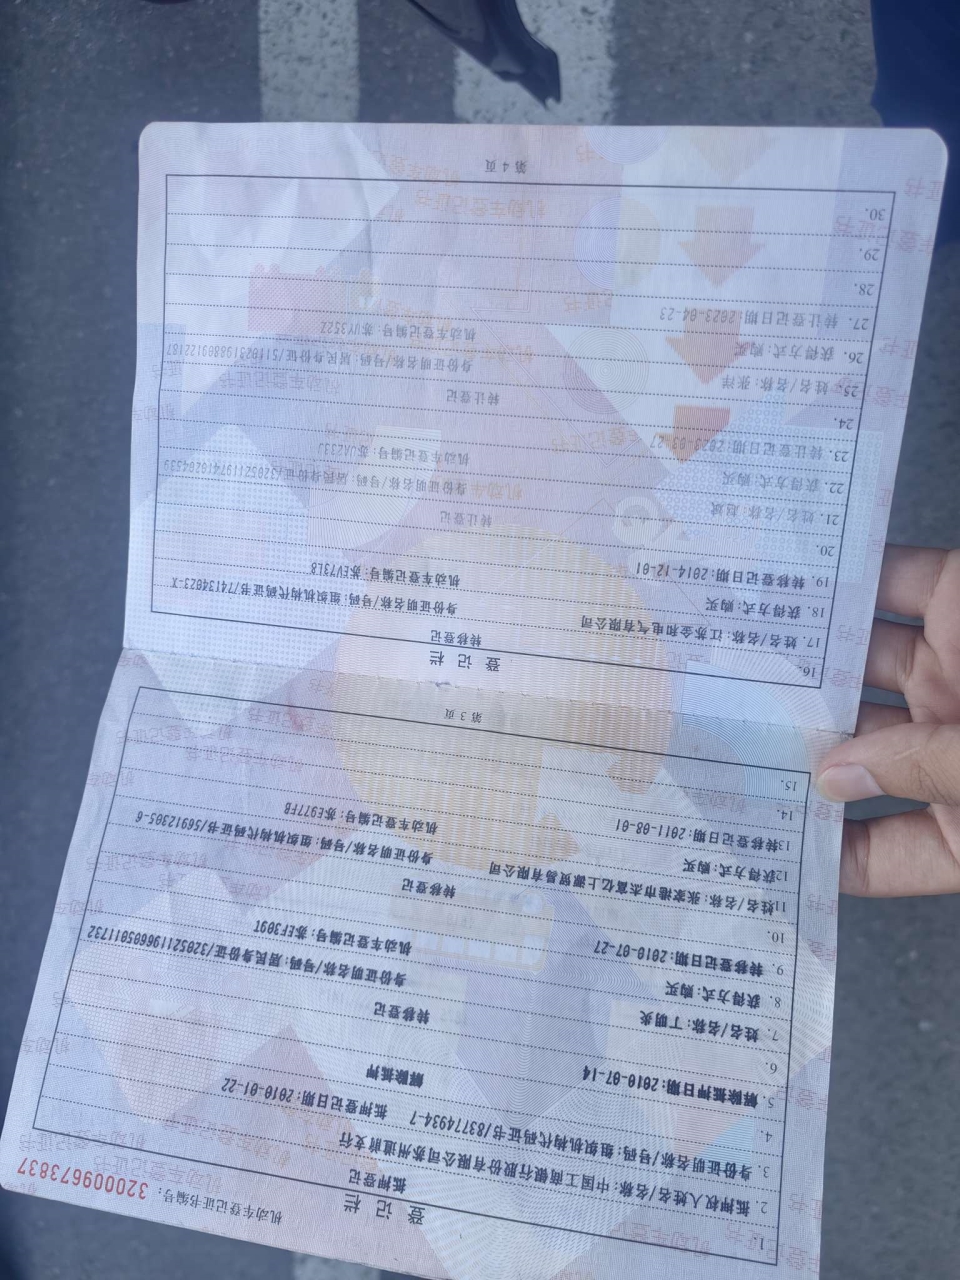 机动车登记证书编号: 320009673837
登 记 栏
1. 抵押登记
2. 抵押权人姓名/名称: 中国工商银行股份有限公司苏州道前支行
3. 身份证明名称/号码: 组织机构代码证书/83774934-7 抵押登记日期: 2010-01-22
4. 解除抵押
5. 解除抵押日期: 2010-07-14
6. 转移登记
7. 姓名/名称: 丁明炎 身份证明名称/号码: 居民身份证/320521196605011732
8. 获得方式: 购买 机动车登记编号: 苏EF309T
9. 转移登记日期: 2010-07-27
10. 转移登记
11. 姓名/名称: 张家港市杰富亿上源贸易有限公司 身份证明名称/号码: 组织机构代码证书/56912305-6
12. 获得方式: 购买 机动车登记编号: 苏E977F8
13. 转移登记日期: 2011-08-01
14.
15.
第 3 页
登 记 栏
16. 转移登记
17. 姓名/名称: 江苏金和电气有限公司 身份证明名称/号码: 组织机构代码证书/74134023-X
18. 获得方式: 购买 机动车登记编号: 苏EV73L8
19. 转移登记日期: 2014-12-01
20. 转让登记
21. 姓名/名称: 赵斌 身份证明名称/号码: 居民身份证/320521197410204539
22. 获得方式: 购买 机动车登记编号: 苏UA233J
23. 转让登记日期: 2023-03-27
24. 转让登记
25. 姓名/名称: 张洋 身份证明名称/号码: 居民身份证/511023198809122187
26. 获得方式: 购买 机动车登记编号: 苏UY352Z
27. 转让登记日期: 2023-04-23
28.
29.
30.
第 4 页